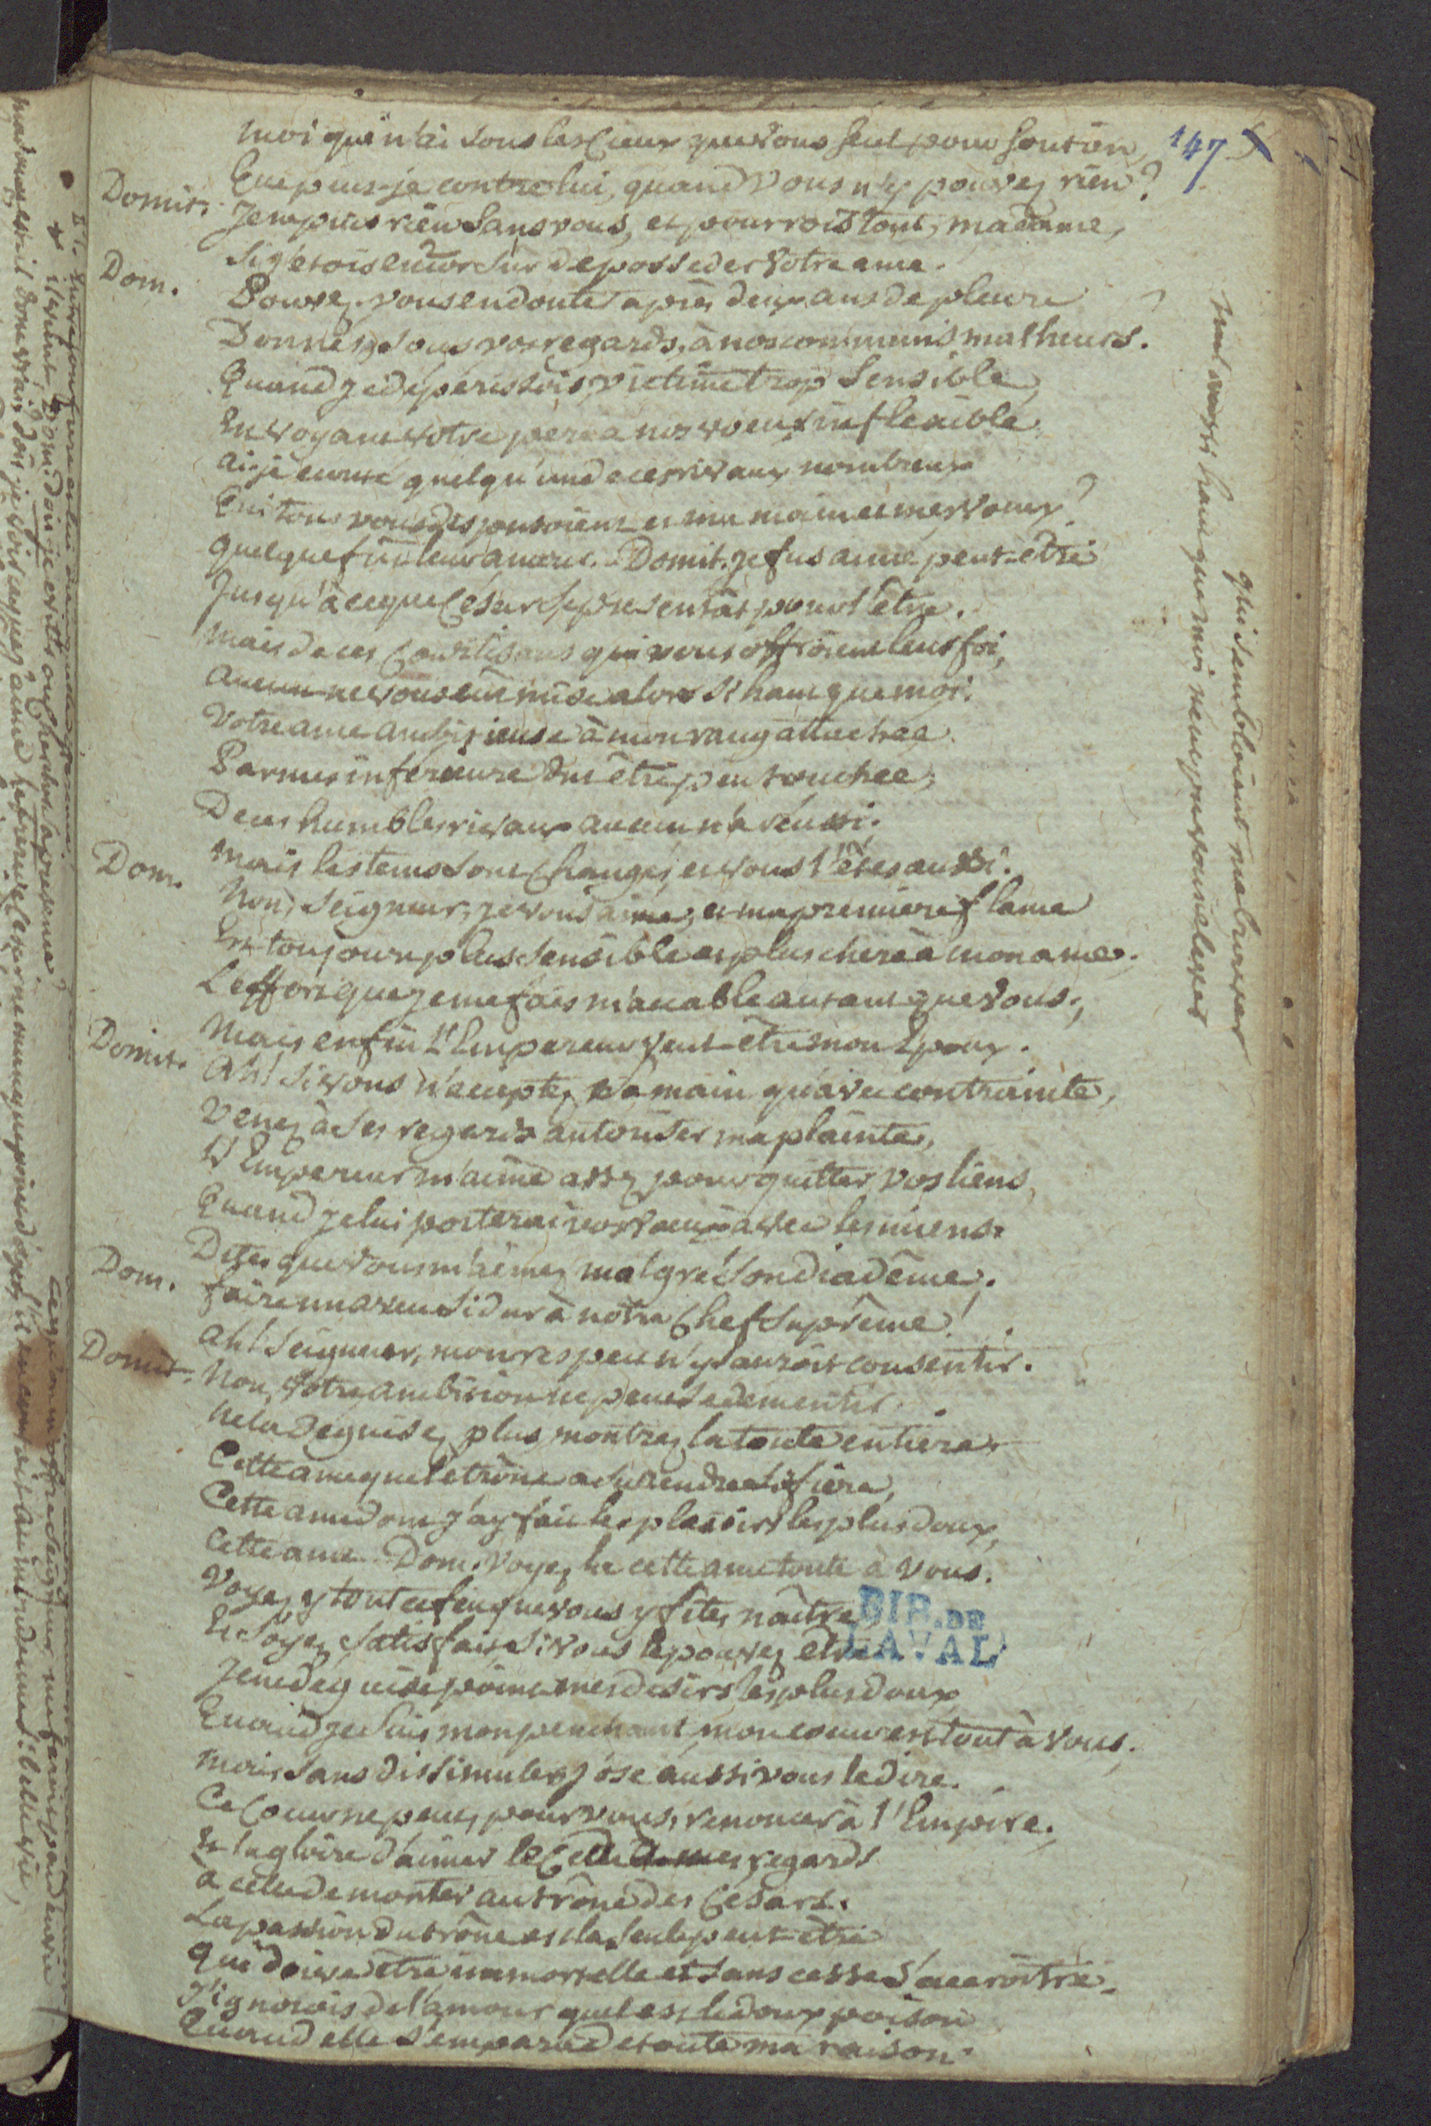 147
moi qui n'ai sous les Cieux que vous seul pour soutien,
Que puis-je contre lui, quand vous n'y pouvez rien?
Domit. Je ne puis rien sans vous, et pourrois tout, madame,
Si j'étois encor sur de posseder votre ame.
Dom. Pouvez vous en douter après deux ans de pleurs
Donnés, sous vos regards, à nos communs malheurs?
Quand je dépérissois, victime trop sensible,
En voyant votre père à nos voeux inflexible,
ai-je ecouté quelqu'un de ces rivaux nombreux
Qui tous vous disputoient et ma main et mes voeux?
quelque fut leur amour. Domit. Je fus aimé peut-être
Jusqu'à ce que Cesar se présentât pour l'être.
mais de ces Courtisans qui vous offroient leur foi,
aucun ne vous eût mise alors si haut que moi.
Votre ame ambitieuse à mon rang attachée
Par mes inférieurs dut être peu touchée;
De ces humbles rivaux aucun n'a réussi.
mais les tems sont changés, et vous l'êtes aussi.
Dom. Non, Seigneur, je vous aime, et ma première flame
Est toujours plus sensible et plus chere à mon ame.
L'effort que je me fais m'accable autant que vous;
Mais enfin l'Empereur veut être mon Epoux.
Domit. Ah! si vous n'acceptez sa main qu'avec contrainte,
Venez à ses regards autoriser ma plainte,
L'Empereur m'aime assez pour quitter vos liens,
Quand je lui porterai vos voeux avec les miens.
Dites que vous m'aimez malgré son diadême.
Dom. faire un aveu si dur à notre Chef suprême!
ah! Seigneur, mon respect n'y sauroit consentir.
Domit. Non, votre ambition ne peut se dementir.
Ne la deguisez plus, montrez la toute entiere,
Cette ame que le trône a su rendre si fière,
Cette ame dont j'ay fait les plaisirs les plus doux,
Cette ame.. Dom. Voyez la cette ame toute à vous.
Voyez y tout ce feu que vous y fites naître,
Et soyez satisfait, si vous le pouvez etre.
Je ne deguise point mes desirs les plus doux
Quand je suis mon penchant, mon coeur est tout à vous.
mais sans dissimuler j'ose aussi vous le dire.
Ce Coeur ne peut, pour vous, renoncer à l'Empire,
Et la gloire d'aimer le Celle de mes regards
à celle de monter au trône des Cesars.
La passion du trône est la seule peut-être
Qui doive être immortelle et sans cesse s'accroître.
J'ignorois de l'amour quel est le doux poison
Quand elle s'empara de toute ma raison.
BIB. DE
LAVAL
qui sembloient m'abuser